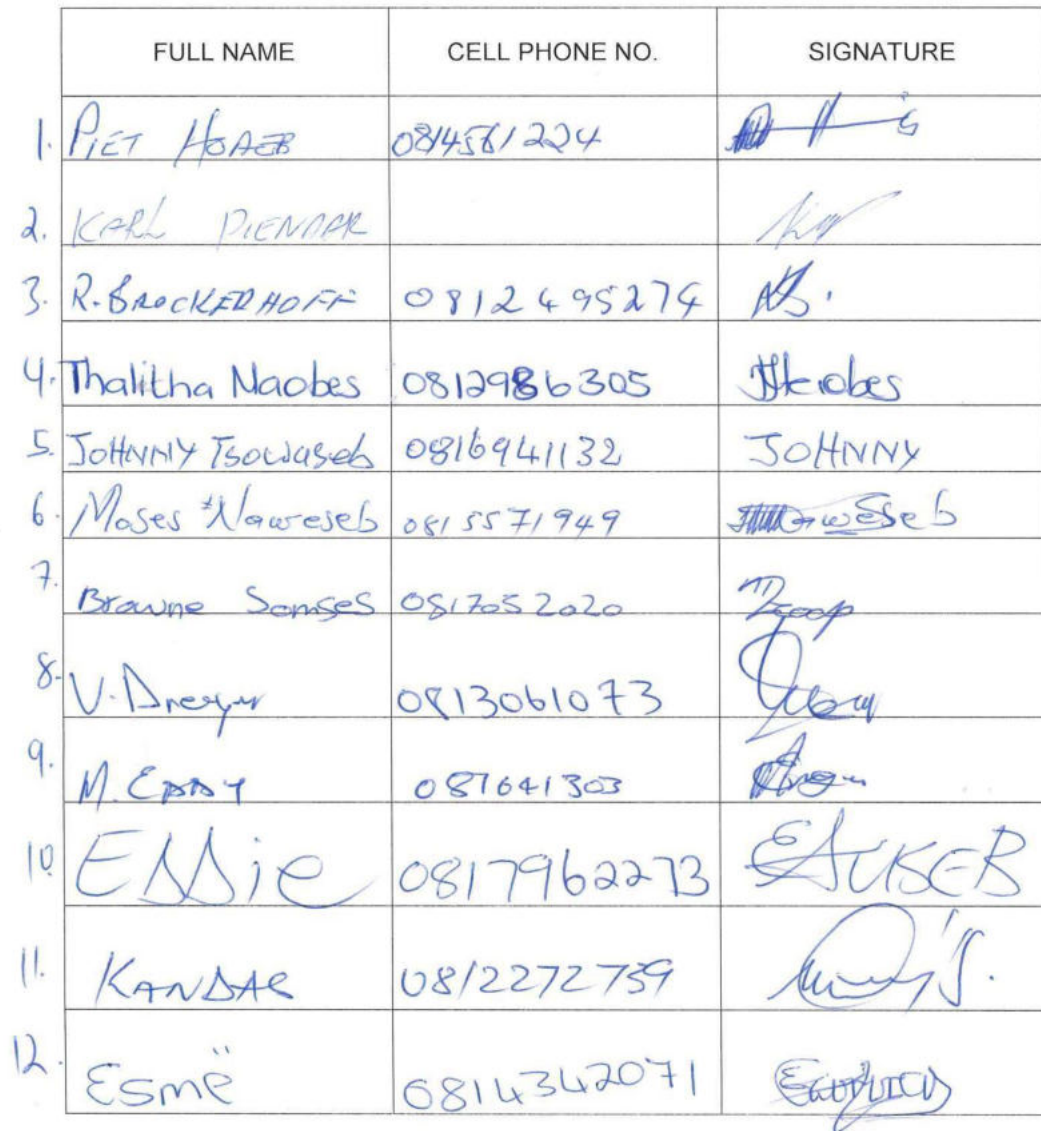 FULL NAME CELL PHONE NO. SIGNATURE
1. PIET HOAEB 0814561224
2. KARL DIENDAR
3. R. BROCKERHOFF 0812495274
4. Thalitha Naobes 0812986305
5. JOHNNY Tsowaseb 0816941132 JOHNNY
6. Moses ǂNaweseb 0815571949
7. Browne Somses 0817052020
8. V. Dreyer 0813061073
9. M. EDDY 081641303
10. Eddie 0817962273 EAUSEB
11. KANDAS 0812272759
12. Esmë 0814342071